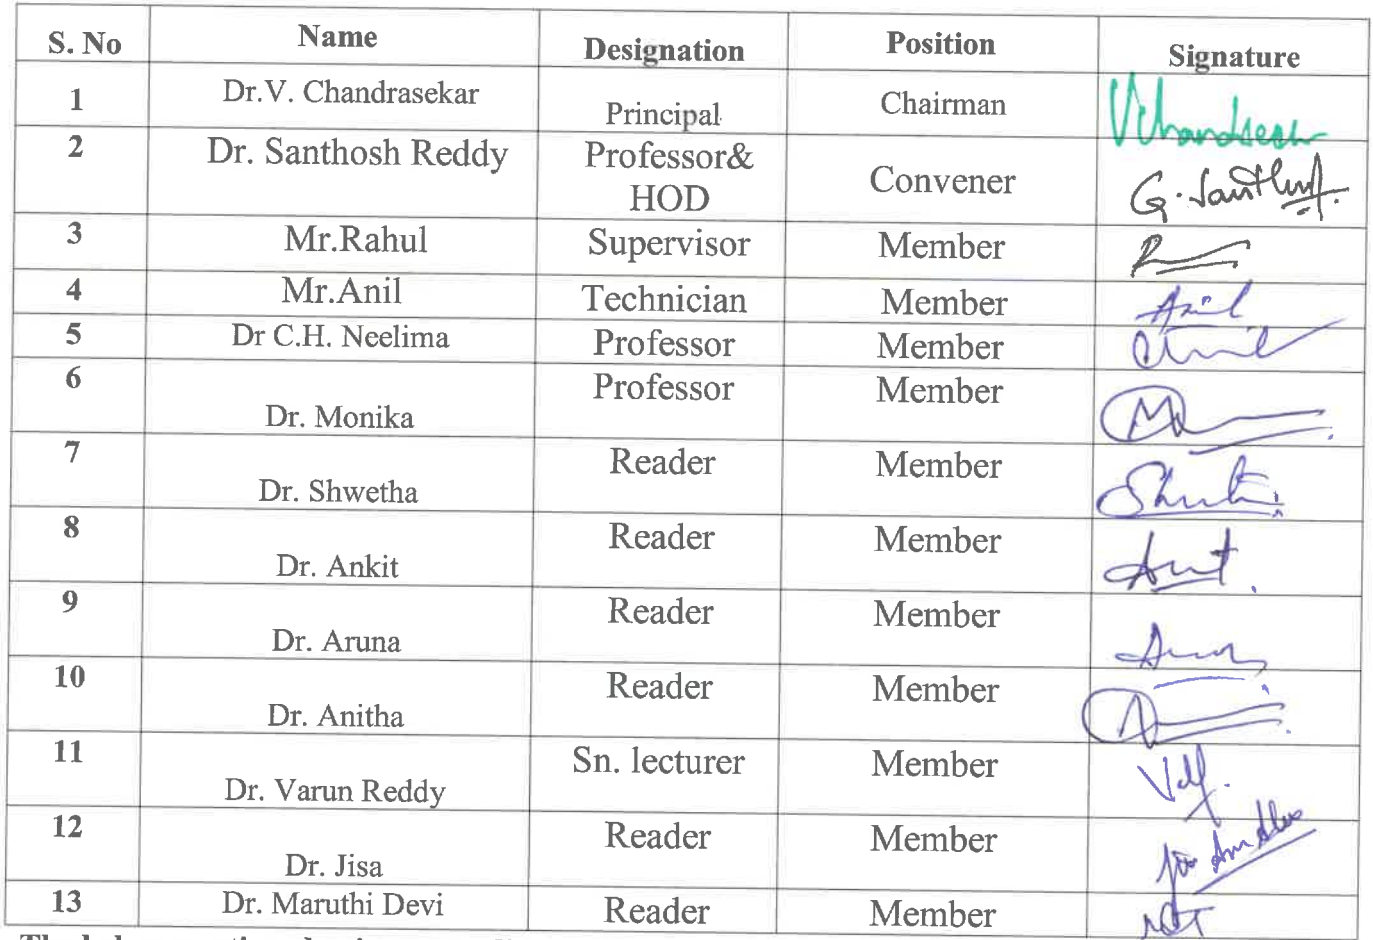 S. No Name Designation Position Signature
1 Dr.V. Chandrasekar Principal Chairman Vchandrasekar
2 Dr. Santhosh Reddy Professor& HOD Convener G. Santhosh
3 Mr.Rahul Supervisor Member
4 Mr.Anil Technician Member Anil
5 Dr C.H. Neelima Professor Member
6 Dr. Monika Professor Member
7 Dr. Shwetha Reader Member
8 Dr. Ankit Reader Member
9 Dr. Aruna Reader Member
10 Dr. Anitha Reader Member
11 Dr. Varun Reddy Sn. lecturer Member
12 Dr. Jisa Reader Member
13 Dr. Maruthi Devi Reader Member